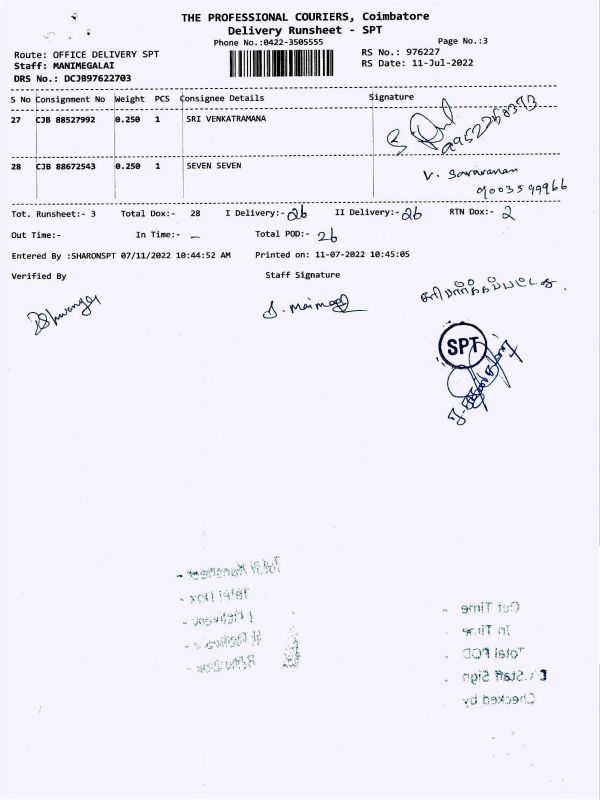 THE PROFESSIONAL COURIERS, Coimbatore
Delivery Runsheet - SPT
Phone No.:0422-3505555
Page No.:3
Route: OFFICE DELIVERY SPT
RS No.: 976227
Staff: MANIMEGALAI
RS Date: 11-Jul-2022
DRS No.: DCJB97622703
S No Consignment No Weight PCS Consignee Details Signature
27 CJB 88527992 0.250 1 SRI VENKATRAMANA
28 CJB 88672543 0.250 1 SEVEN SEVEN V. Saravanan
9003599966
Tot. Runsheet:- 3 Total Dox:- 28 I Delivery:- 26 II Delivery:- 26 RTN Dox:- 2
Out Time:- In Time:- – Total POD:- 26
Entered By :SHARONSPT 07/11/2022 10:44:52 AM Printed on: 11-07-2022 10:45:05
Verified By Staff Signature
சரிபார்க்கப்பட்டது.
SPT
Total Runsheet -
Total Dox -
I Delivery -
II Delivery -
RTN Dox -
Out Time -
In Time -
Total POD -
Staff Sign -
Checked by -